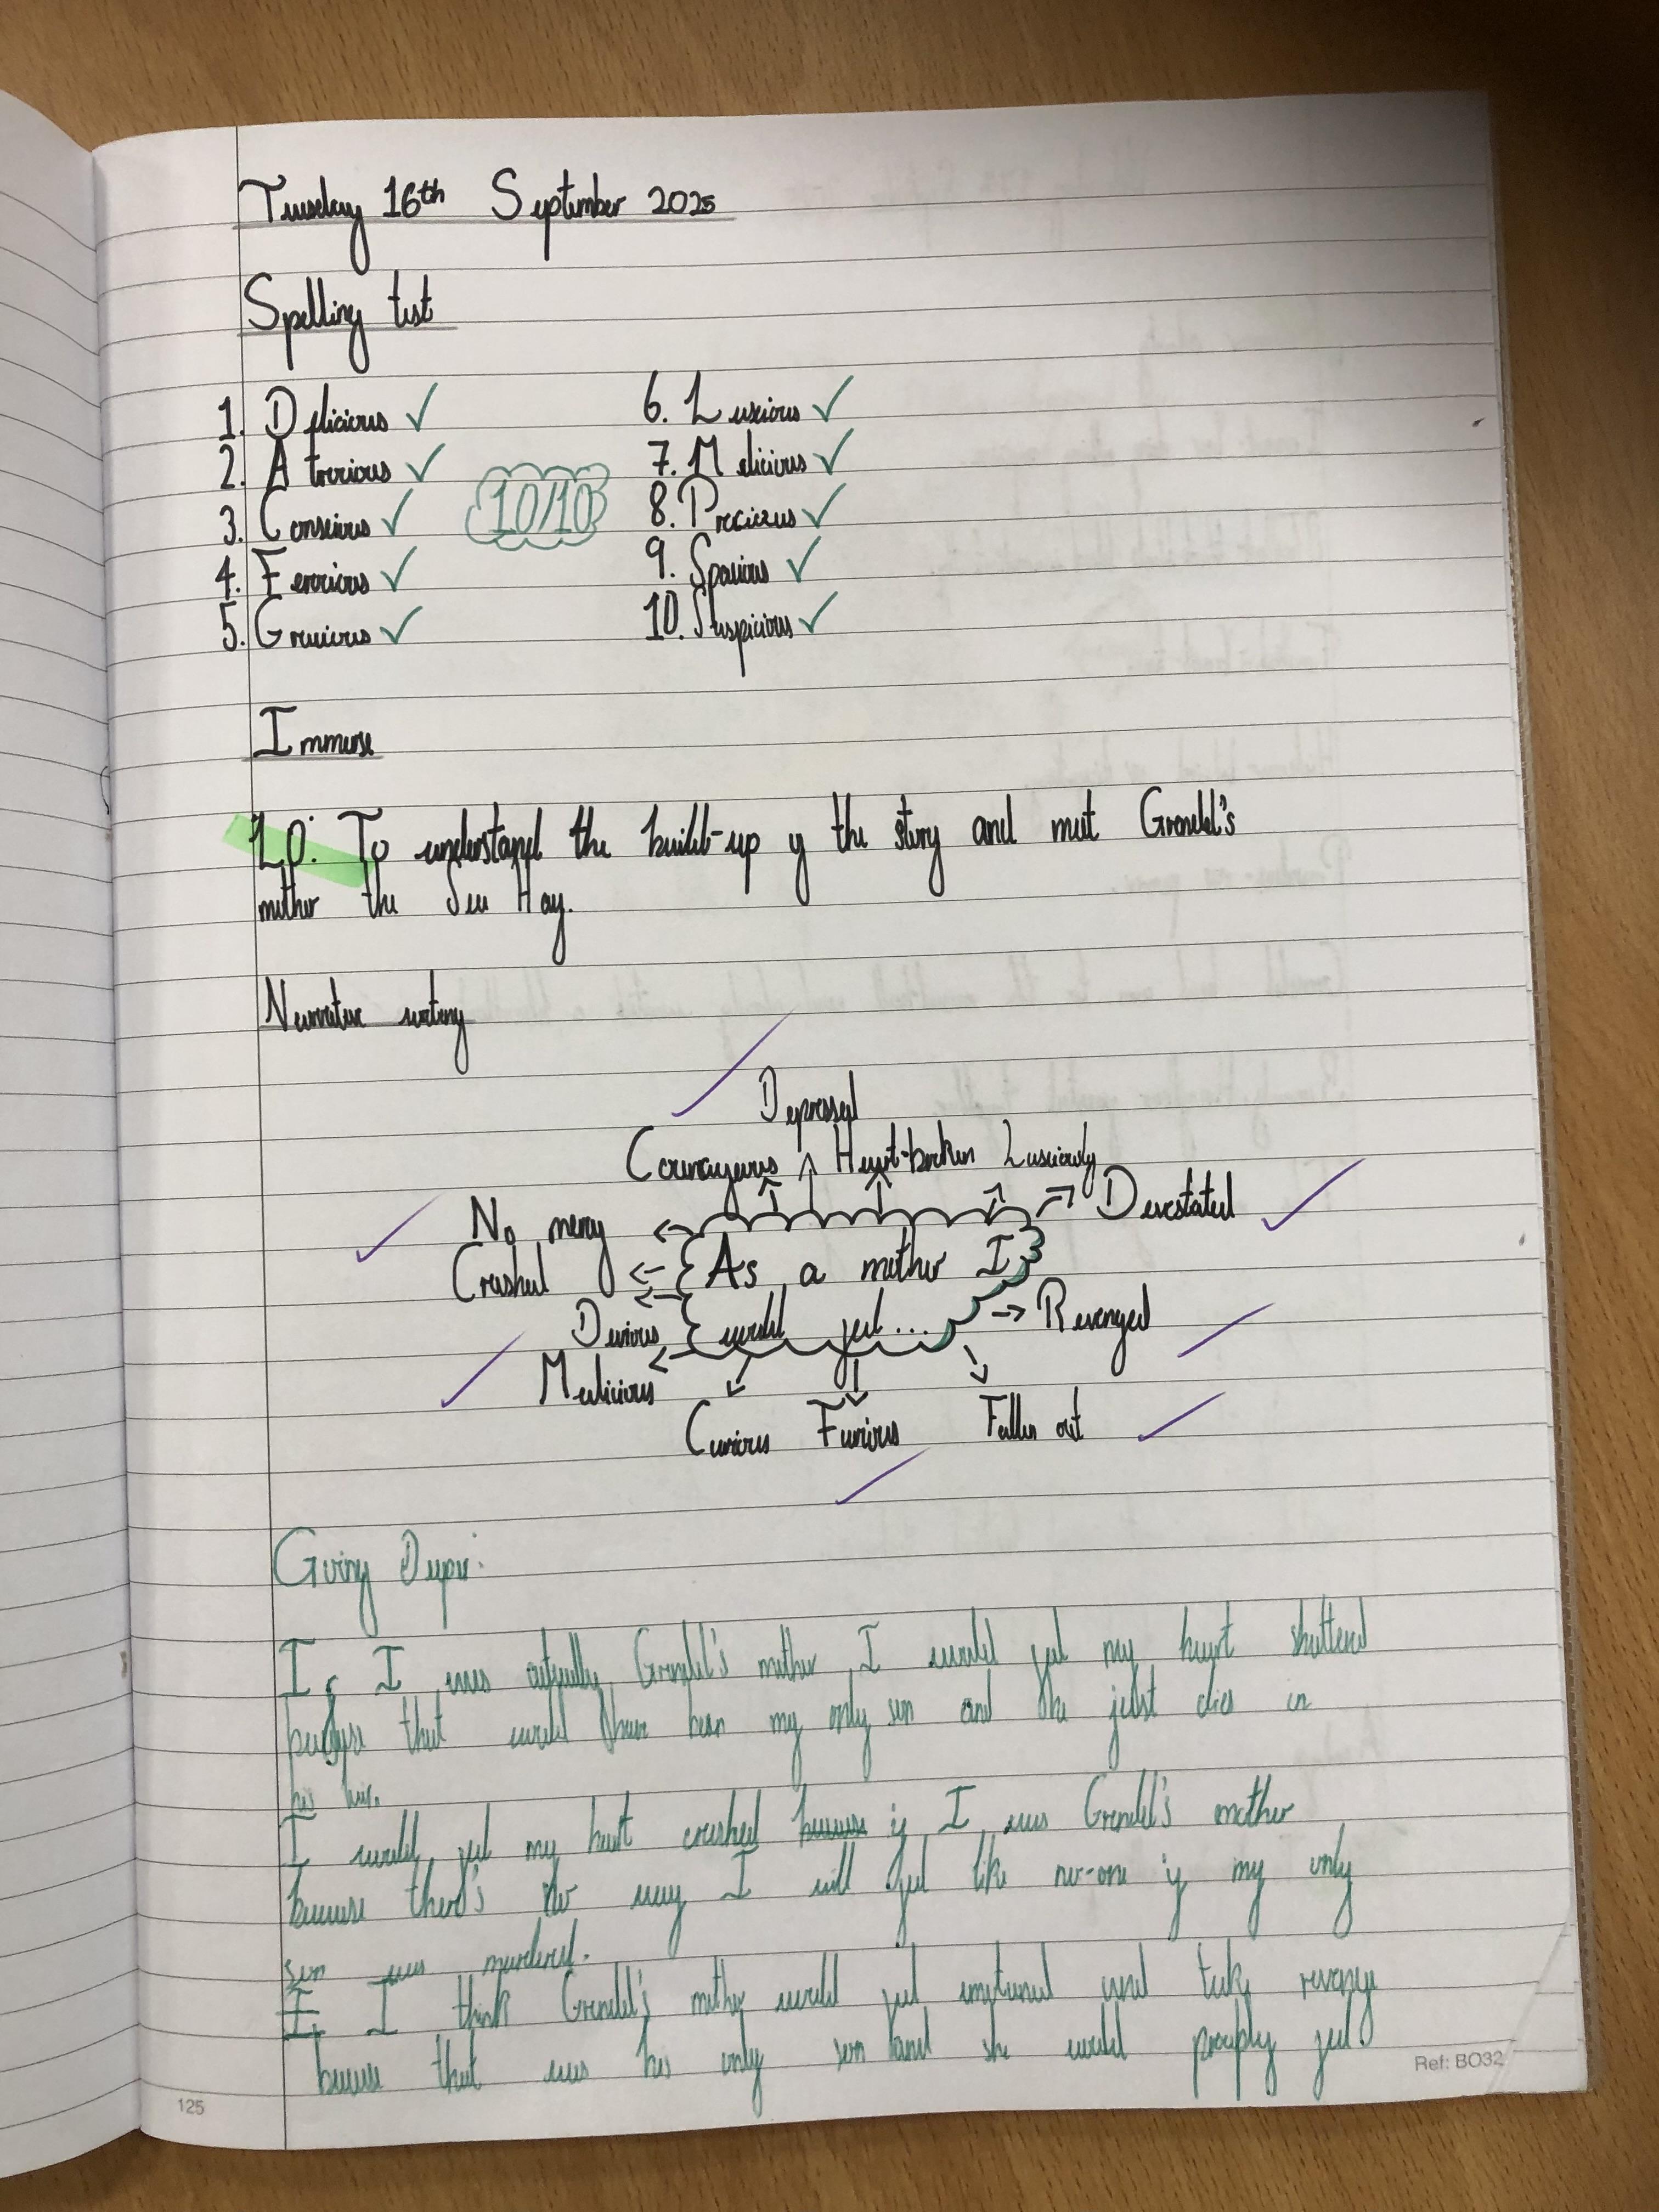 Tuesday 16th September 2025
Spelling test
1. Delicious ✓ 6. Luscious ✓
2. Atrocious ✓ 7. Malicious ✓
10/10
3. Conscious ✓ 8. Precious ✓
4. Ferocious ✓ 9. Spacious ✓
5. Gracious ✓ 10. Suspicious ✓
Immerse
LO: To understand the build-up of the story and meet Grendel's
mother the Sea Hag.
Narrative writing
Depressed
Courageous Heart-broken Lusciously
No mercy Devestated
Crushed
As a mother I
would feel...
Devious Revenged
Malicious
Curious Furious Fallen out
Going Deeper:
If I was actually Grendel's mother I would feel my heart shattered
because that would have been my only son and he just died in
his
I would feel my heart crushed because if I was Grendel's mother
because there's no way I will feel like no-one if my only
son was murdered.
If I think Grendel's mother would feel emotional and take revenge
because that was her only son and she would feel
125
Ref: BO32